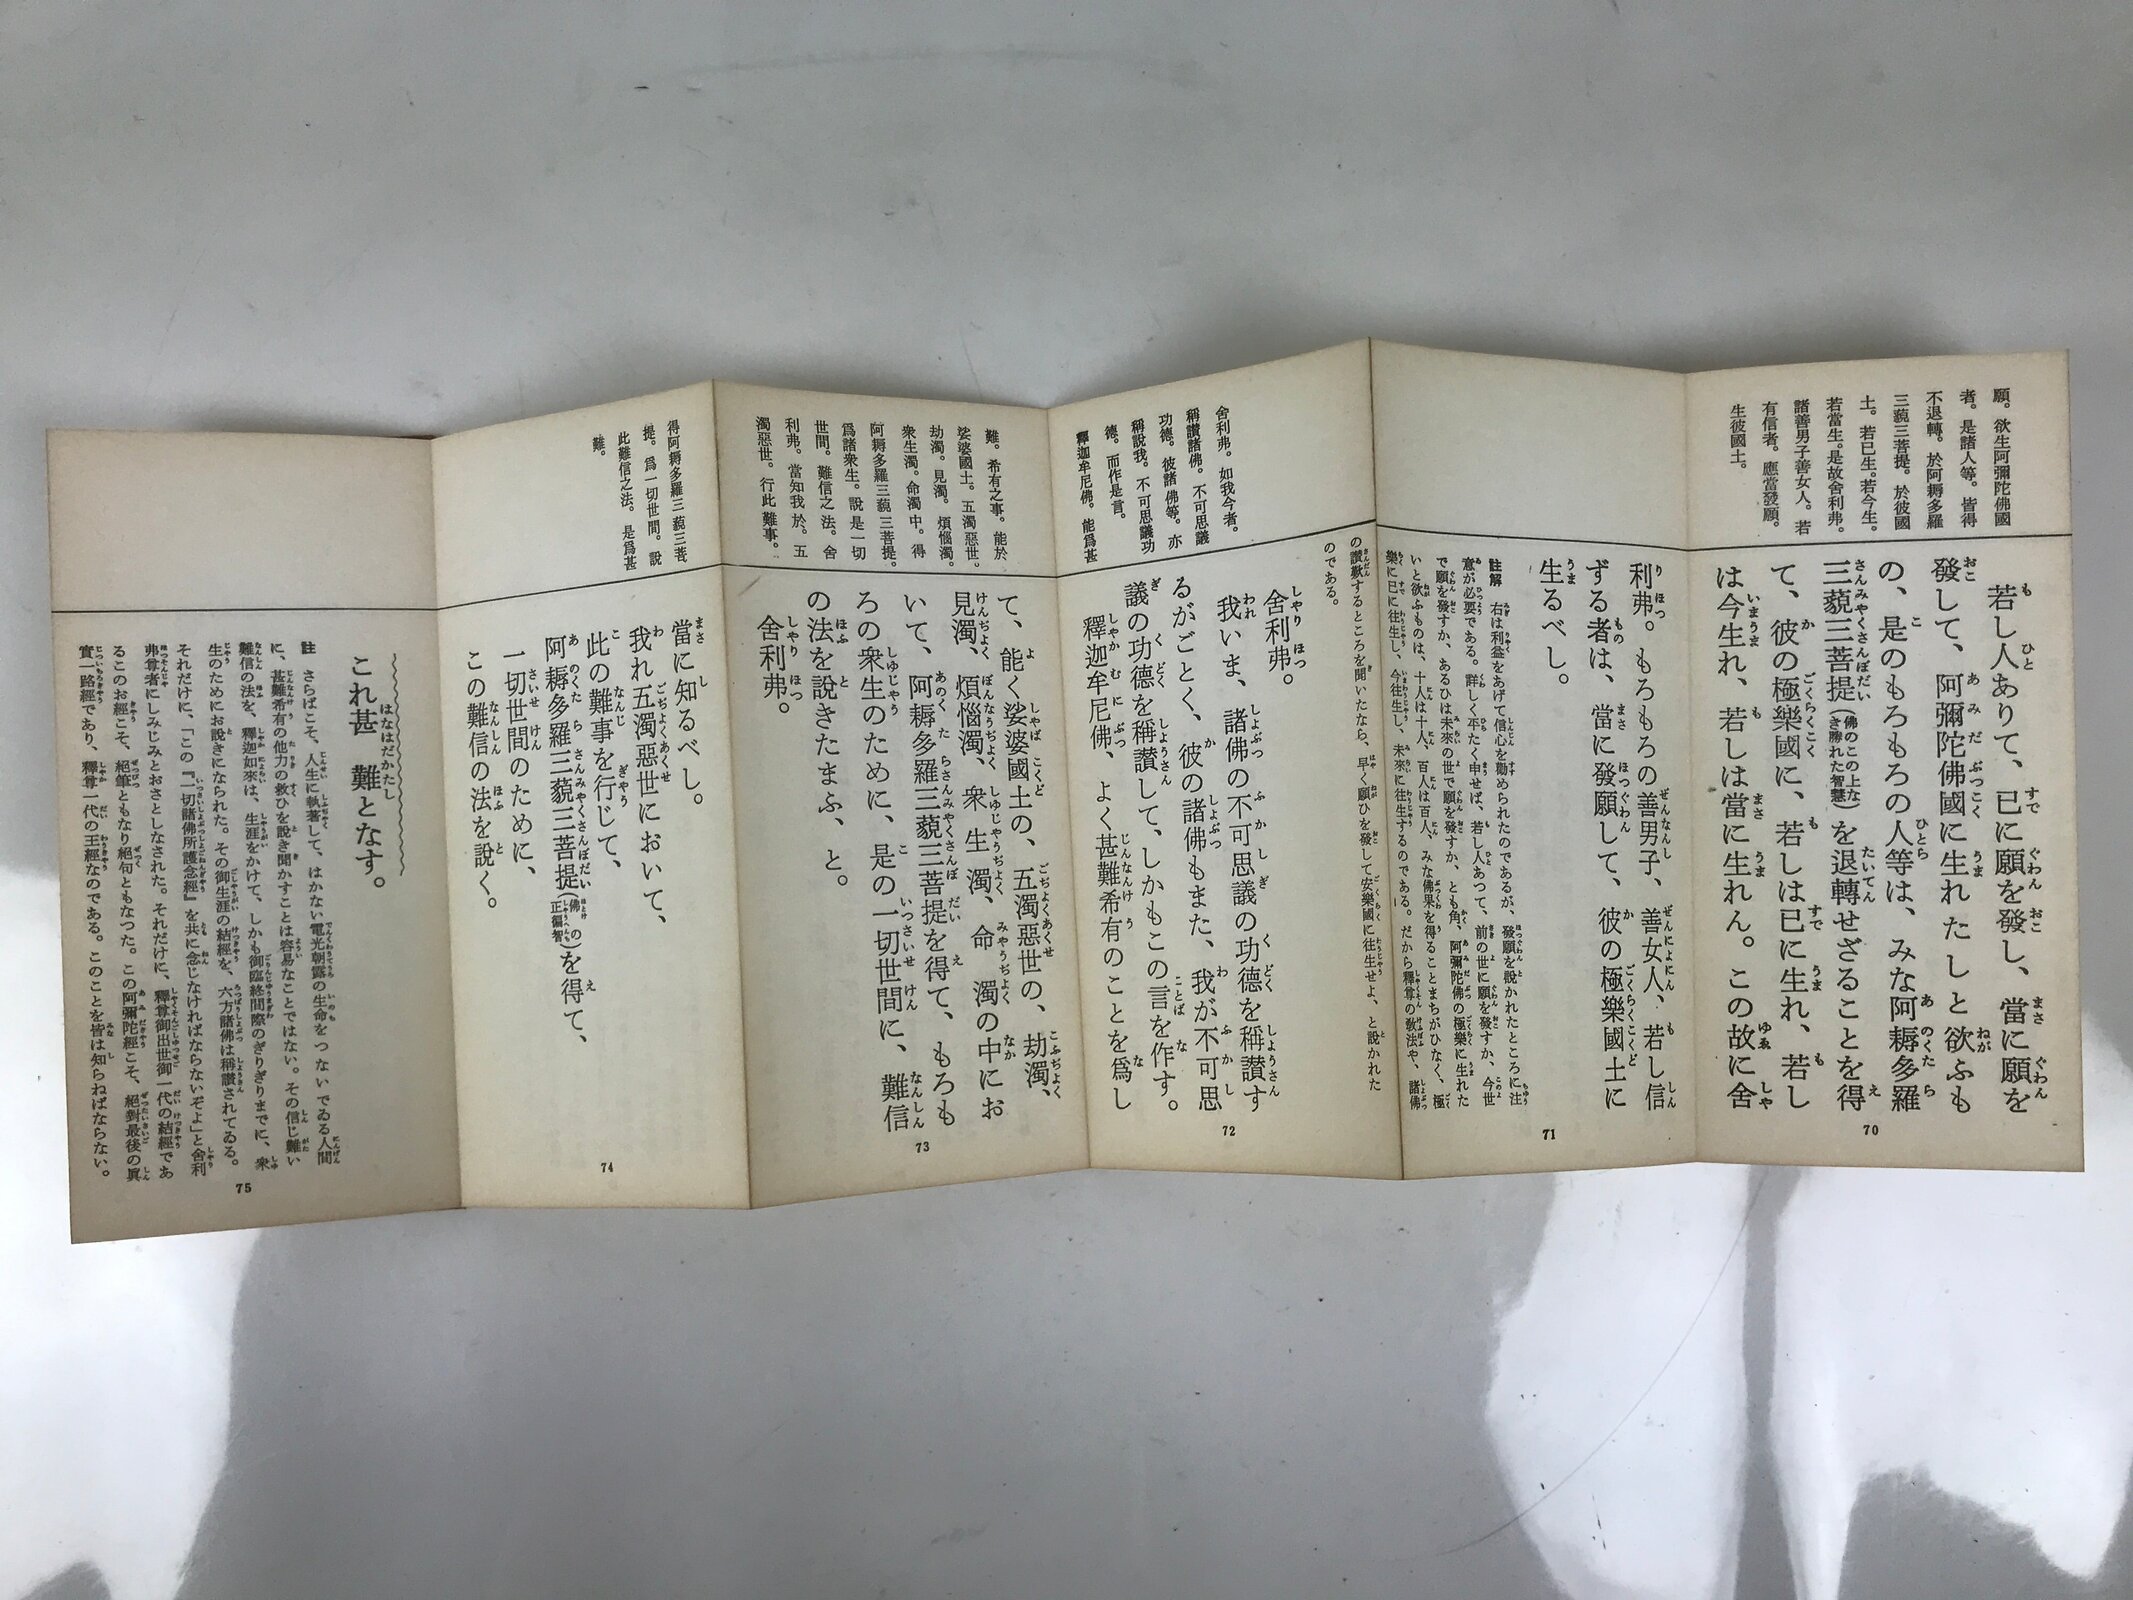 願。欲生阿彌陀佛國
者。是諸人等。皆得
不退轉。於阿耨多羅
三藐三菩提。於彼國
土。若已生。若今生。
若當生。是故舍利弗。
諸善男子善女人。若
有信者。應當發願。
生彼國土。
若し人ありて、已に願を發し、當に願を
發して、阿彌陀佛國に生れたしと欲ふも
の、是のもろもろの人等は、みな阿耨多羅
三藐三菩提(佛のこの上なき勝れた智慧)を退轉せざることを得
て、彼の極樂國に、若しは已に生れ、若し
は今生れ、若しは當に生れん。この故に舍
70
利弗。もろもろの善男子、善女人、若し信
ずる者は、當に發願して、彼の極樂國土に
生るべし。
註解 右は利益をあげて信心を勸められたのであるが、發願を說かれたところに注
意が必要である。詳しく平たく申せば、若し人あつて、前の世に願を發すか、今世
で願を發すか、あるひは未來の世で願を發すか、とも角、阿彌陀佛の極樂に生れた
いと欲ふものは、十人は十人、百人は百人、みな佛果を得ることまちがひなく、極
樂に已に往生し、今往生し、未來に往生するのである。だから釋尊の敎法や、諸佛
71
の讚歎するところを聞いたなら、早く願ひを發して安樂國に往生せよ、と說かれた
のである。
舍利弗。如我今者。
稱讚諸佛。不可思議
功德。彼諸佛等。亦
稱說我。不可思議功
德。而作是言。
釋迦牟尼佛。能爲甚
舍利弗。
我いま、諸佛の不可思議の功德を稱讚す
るがごとく、彼の諸佛もまた、我が不可思
議の功德を稱讚して、しかもこの言を作す。
釋迦牟尼佛、よく甚難希有のことを爲し
72
難。希有之事。能於
娑婆國土。五濁惡世。
劫濁。見濁。煩惱濁。
衆生濁。命濁中。得
阿耨多羅三藐三菩提。
爲諸衆生。說是一切
世間。難信之法。舍
利弗。當知我於。五
濁惡世。行此難事。
て、能く娑婆國土の、五濁惡世の、劫濁、
見濁、煩惱濁、衆生濁、命濁の中にお
いて、阿耨多羅三藐三菩提を得て、もろも
ろの衆生のために、是の一切世間に、難信
の法を說きたまふ、と。
舍利弗。
73
得阿耨多羅三藐三菩
提。爲一切世間。說
此難信之法。是爲甚
難。
當に知るべし。
我れ五濁惡世において、
此の難事を行じて、
阿耨多羅三藐三菩提(佛の正徧智)を得て、
一切世間のために、
この難信の法を說く。
74
これ甚 難となす。
註 さらばこそ、人生に執著して、はかない電光朝露の生命をつないでゐる人間
に、甚難希有の他力の救ひを說き聞かすことは容易なことではない。その信じ難い
難信の法を、釋迦如來は、生涯をかけて、しかも御臨終間際のぎりぎりまでに、衆
生のためにお說きになられた。その御生涯の結經を、六方諸佛は稱讚されてゐる。
それだけに、「この『一切諸佛所護念經』を共に念じなければならないぞよ」と舍利
弗尊者にしみじみとおさとしなされた。それだけに、釋尊御出世御一代の結經であ
るこのお經こそ、絕筆ともなり絕句ともなつた。この阿彌陀經こそ、絕對最後の眞
實一路經であり、釋尊一代の王經なのである。このことを皆は知らねばならない。
75